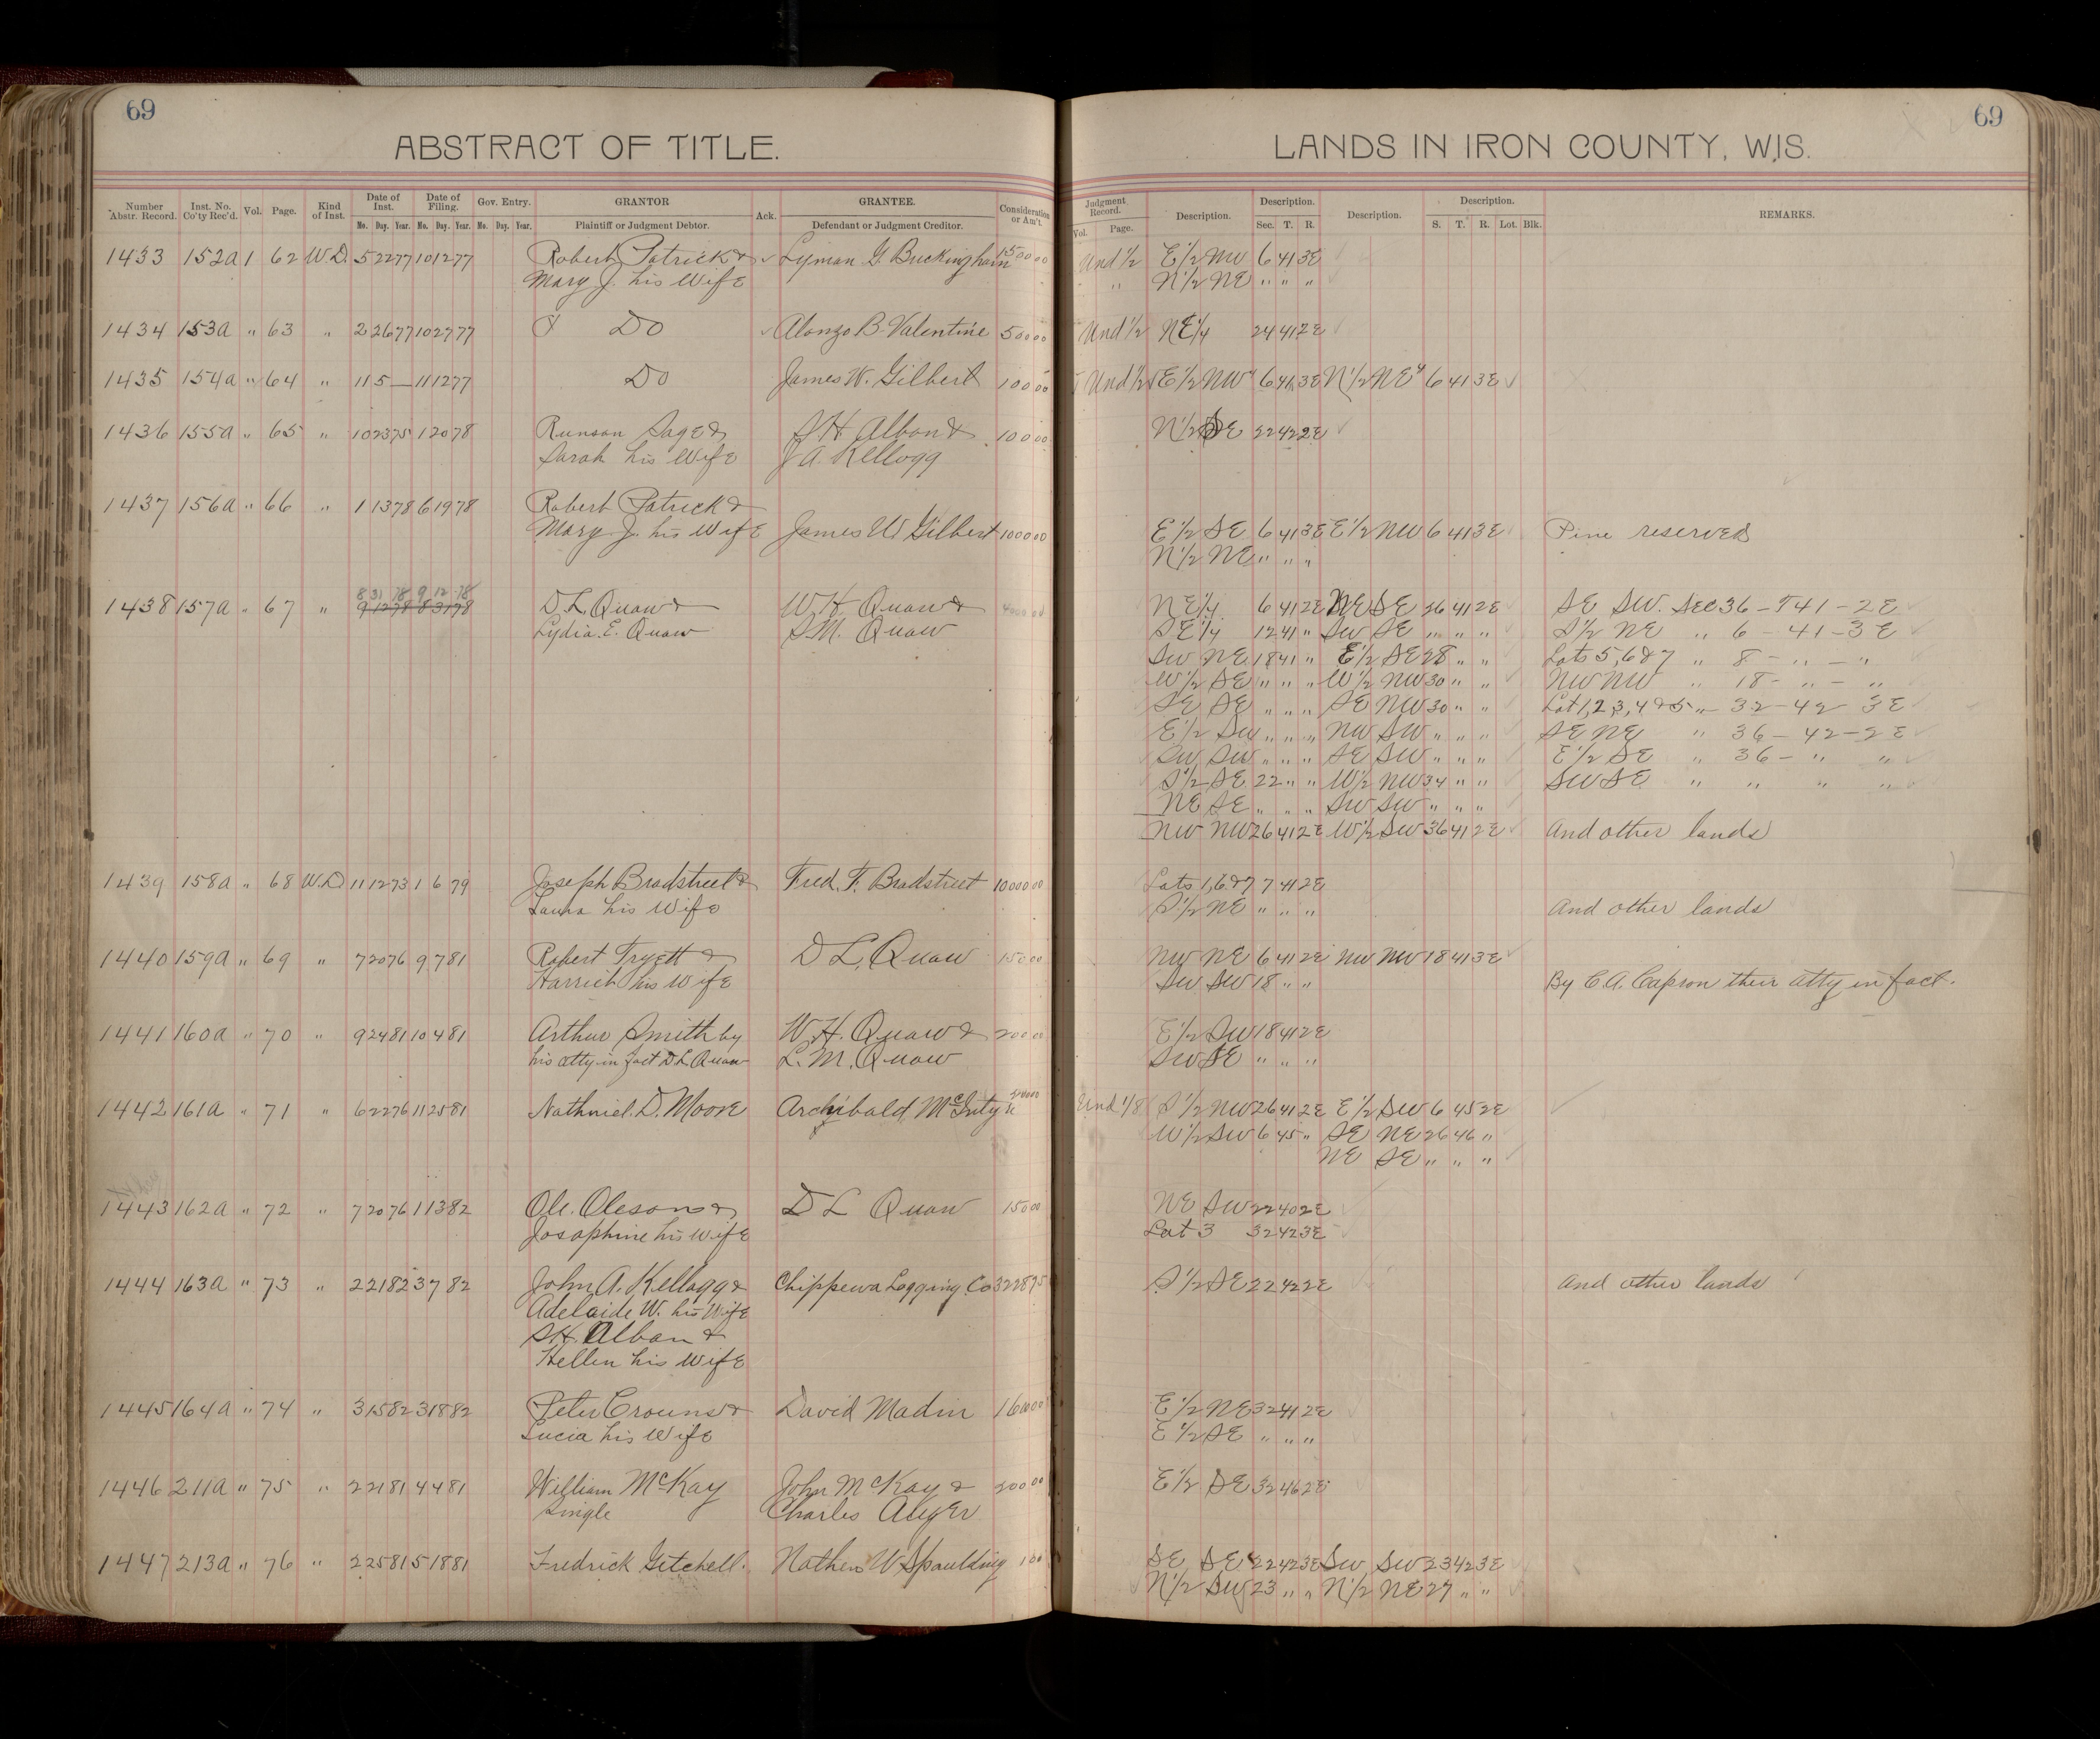 69
69
ABSTRACT OF TITLE.
LANDS IN IRON COUNTY, WIS.
Number Abstr. Record. Inst. No. Co'ty Rec'd. Vol. Page. Kind of Inst. Date of Inst. Date of Filing. Gov. Entry. GRANTOR Ack. GRANTEE. Consideration or Am't.
Mo. Day. Year. Mo. Day. Year. Mo. Day. Year. Plaintiff or Judgment Debtor. Defendant or Judgment Creditor.
Judgment Record. Description. Description. Description. Description. REMARKS.
Vol. Page. Sec. T. R. S. T. R. Lot. Blk.
1433 152a 1 62 W.D. 5 22 77 10 12 77 Robert Patrick & Lyman G. Buckingham 150000 Und 1/2 E 1/2 NW 6 41 3E
Mary J. his Wife " N 1/2 NE " " "
1434 153a " 63 " 2 26 77 10 27 77 Do Alonzo B. Valentine 50000 Und 1/2 NE 1/4 24 41 2E
1435 154a " 64 " 11 5 — 11 12 77 Do James W. Gilbert 10000 Und 1/2 E 1/2 NW 6 41 3E N 1/2 NE 6 41 3E
1436 155a " 65 " 10 23 75 1 20 78 Runson Sage & S H Alban & 10000 N 1/2 SE 22 42 2E
Sarah his Wife J A. Kellogg
1437 156a " 66 " 1 13 78 6 19 78 Robert Patrick &
Mary J. his Wife James W. Gilbert 100000 E 1/2 SE 6 41 3E E 1/2 NW 6 41 3E Pine reserved
N 1/2 NE " " "
8 31 78 9 12 78
1438 157a " 67 " 9 12 78 8 31 78 D. L. Quaw & W. H. Quaw & 4000 00 NE 1/4 6 41 2E NE SE 26 41 2E SE SW. Sec 36 - T 41 - 2E
Lydia. E. Quaw S. M. Quaw SE 1/4 12 41 " SW SE " " " S 1/2 NE " 6 - 41 - 3E
SW NE 18 41 " E 1/2 SE 28 " " Lots 5, 6 & 7 " 8 - " - "
W 1/2 SE " " " W 1/2 NW 30 " " NW NW " 18 - " - "
SE SE " " " SE NW 30 " " Lot 1,2,3,4 & 5 " 32 - 42 3E
E 1/2 SW " " " NW SW " " " SE NE " 36 - 42 - 2E
SW SW " " " SE SW " " " E 1/2 SE " 36 - " "
S 1/2 SE 22 " " W 1/2 NW 34 " " SW SE " " " "
NE SE " " " SW SW " " "
NW NW 26 41 2E W 1/2 SW 36 41 2E And other lands
1439 158a " 68 W.D. 11 12 73 1 6 79 Joseph Bradstreet & Fred. F. Bradstreet 10000 00 Lots 1, 6 & 7 7 41 2E
Laura his Wife S 1/2 NE " " " And other lands
1440 159a " 69 " 7 20 76 9 7 81 Robert Tryett & D L. Quaw 150 00 NW NE 6 41 2E NW NW 18 41 3E
Harriet his Wife SW SW 18 " " By C. A. Capron their atty in fact.
1441 160a " 70 " 9 24 81 10 4 81 Arthur Smith by W. H. Quaw & 200 00 E 1/2 SW 18 41 2E
his atty in fact D L Quaw L. M. Quaw SW SE " " "
1442 161a " 71 " 6 22 76 11 25 81 Nathniel. D. Moore Archibald Und 1/8 S 1/2 NW 26 41 2E E 1/2 SW 6 45 2E
W 1/2 SW 6 45 " SE NE 26 46 "
NE SE " " "
1443 162a " 72 " 7 20 76 1 13 82 Ole. Oleson & D L Quaw 150 00 NE SW 22 40 2E
Josophine his wife Lot 3 32 42 3E
1444 163a " 73 " 2 21 82 3 7 82 John A. Kellogg & Chippewa Logging Co 3228 75 S 1/2 SE 22 42 2E And other lands
Adelaide W. his Wife
S. H. Alban &
Hellen his Wife
1445 164a " 74 " 3 15 82 3 18 82 Peter Crouns & David Madin 1600 00 E 1/2 NE 32 41 2E
Lucia his Wife E 1/2 SE " " "
1446 211a " 75 " 2 21 81 4 4 81 William McKay John McKay & 200 00 E 1/2 SE 32 46 2E
Single Charles Auger
1447 213a " 76 " 2 25 81 5 18 81 Fredrick Getchell. Nathen W Spaulding 1 00 SE SE 22 42 3E SW SW 23 42 3E
N 1/2 SW 23 " " N 1/2 NE 27 " "